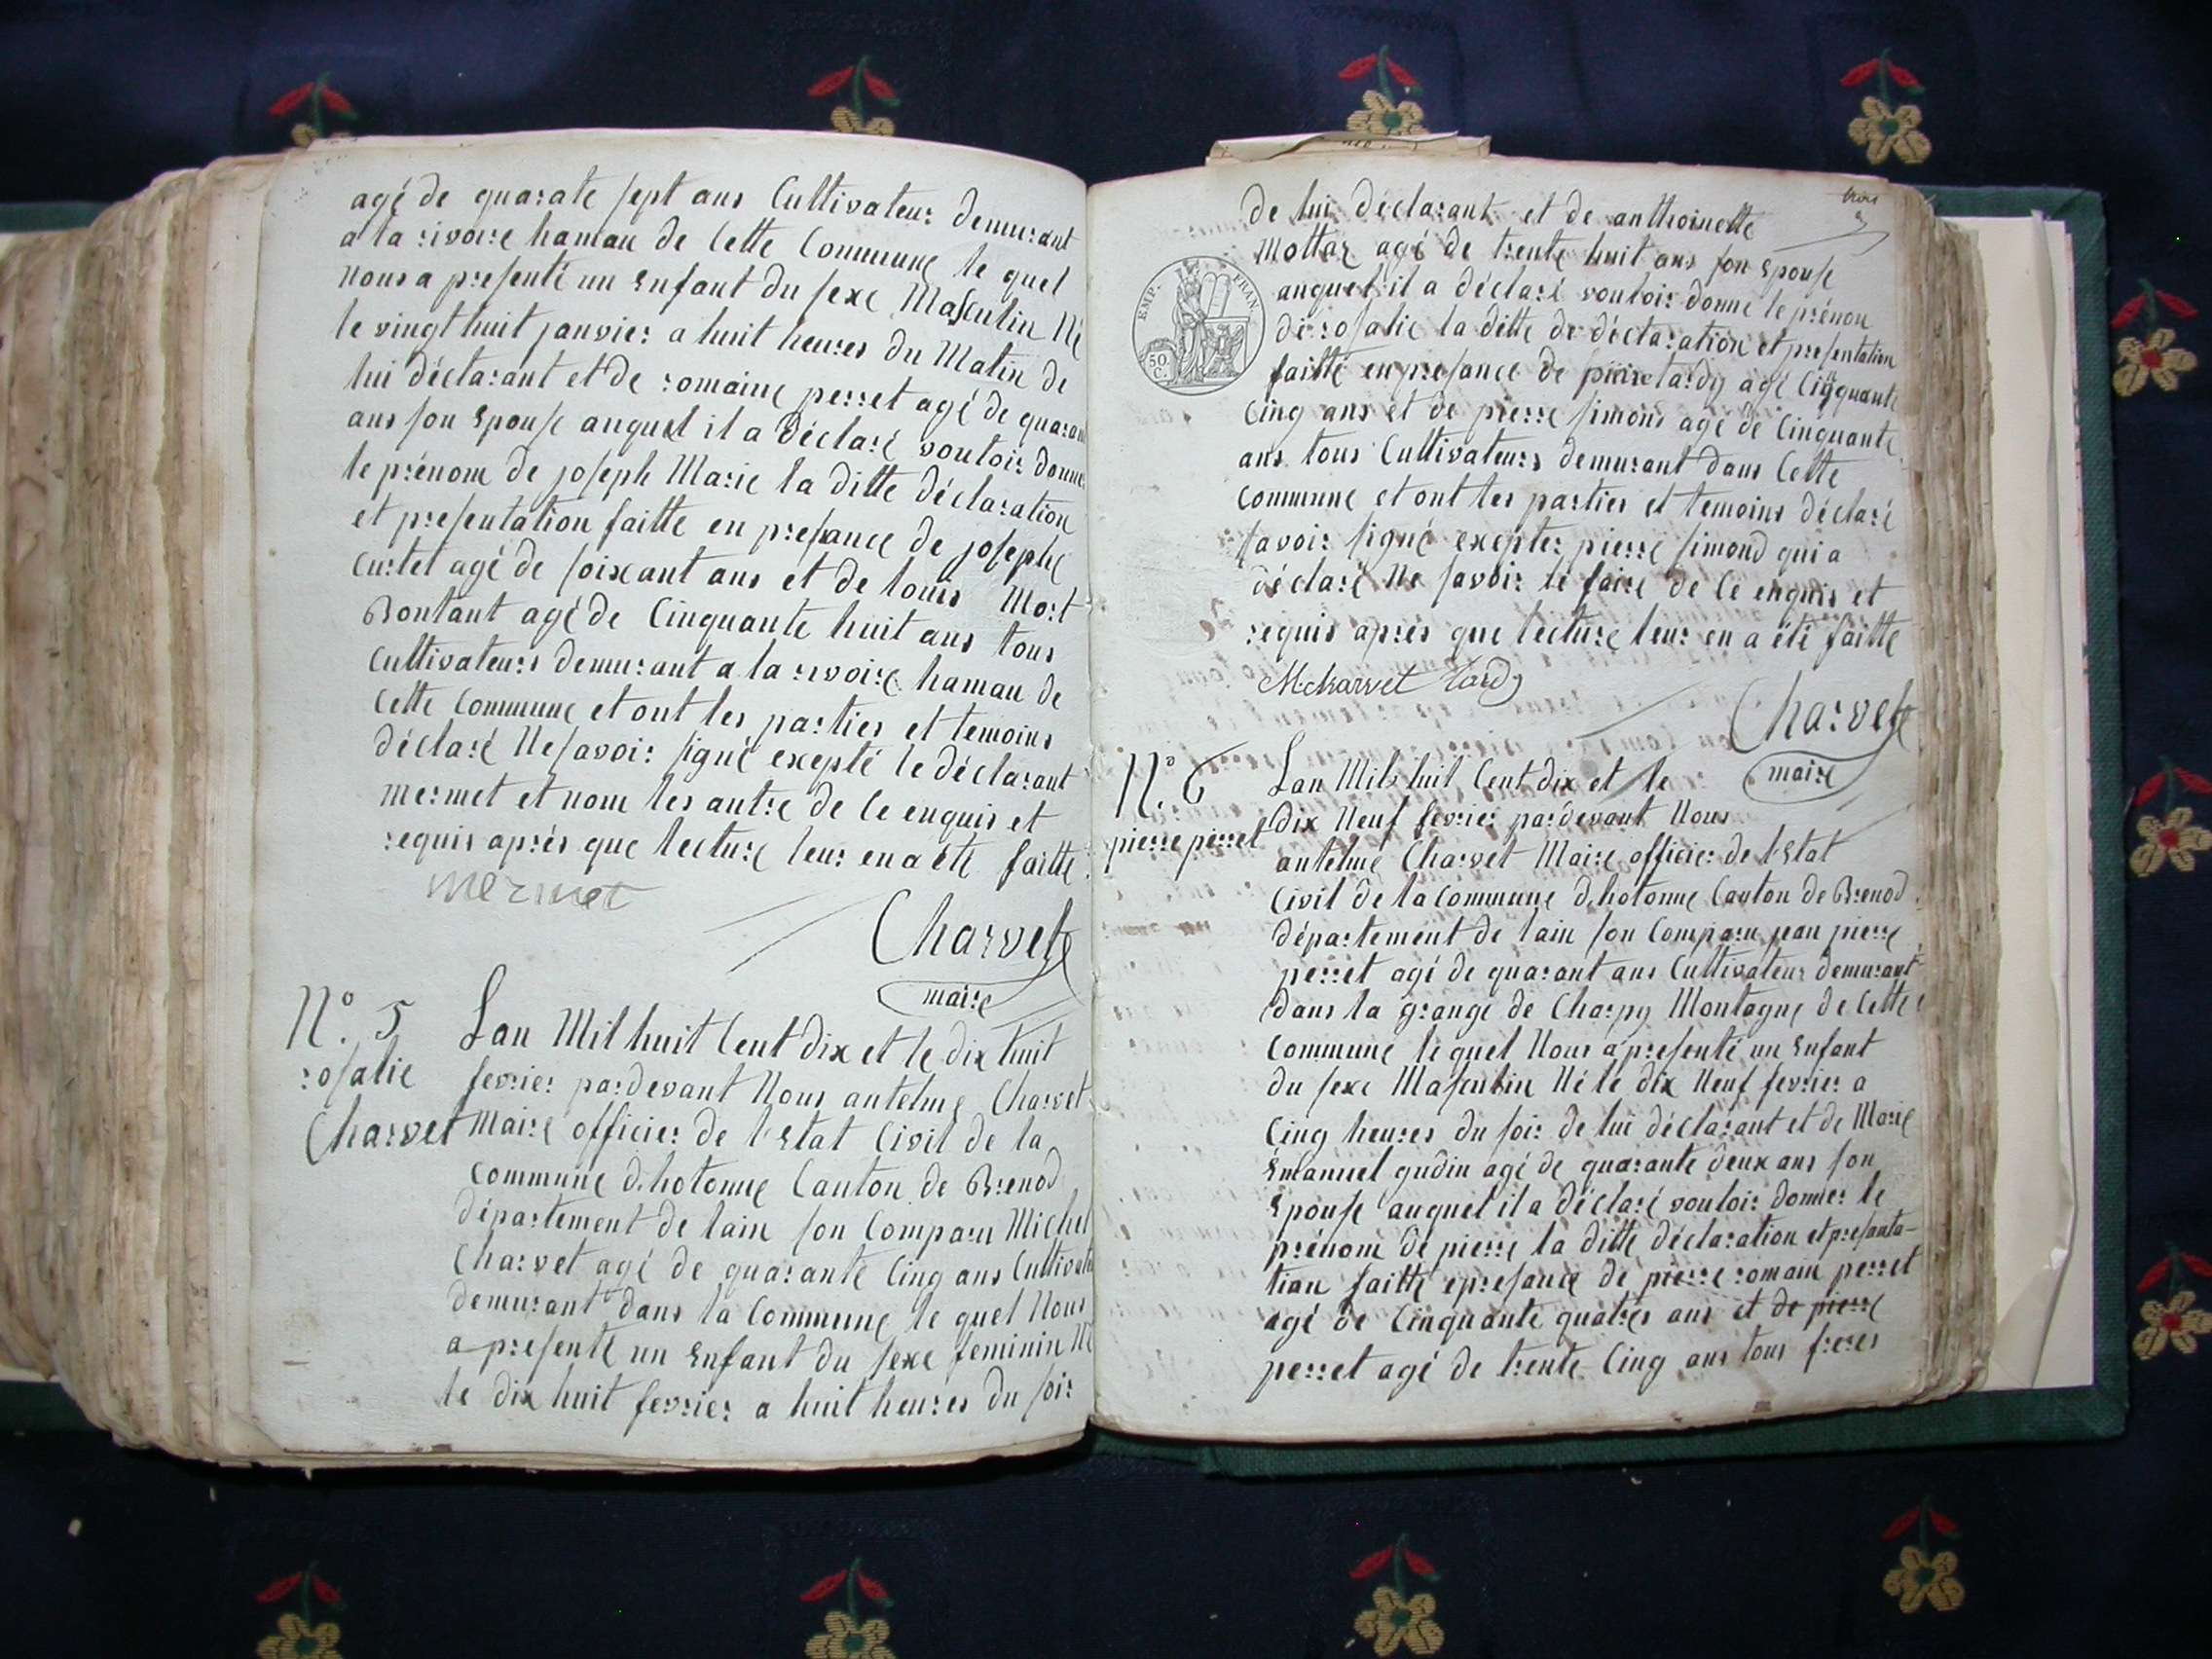 agé de quarate sept ans Cultivateur demurant
a la rivoire hamau de Cette Commune le quel
nous a presenté un Enfant du sexe Masculin Né
le vingt huit janvier a huit heures du Matin de
lui déclarant et de romaine perret agé de quaran
ans son Epouse auquel il a Déclaré vouloir donner
le prénom de joseph Marie la ditte déclaration
et presentation faitte en presance de josephe
Curtet agé de soixant ans et de louis Mort
Bontant agé de Cinquante huit ans tous
Cultivateurs demurant a la rivoire hamau de
Cette Commune et ont les parties et temoins
déclaré Ne savoir signé exepté le déclarant
mermet et nom les autre de Ce enquis et
requis après que lecture leur en a été faitte
mermet
Charvet
maire
N°. 5
rosalie
Charvet
Lan Mil huit Cent dix et le dix huit
fevrier pardevant Nous antelme Charvet
Maire officier de l'Etat Civil de la
Commune d.hotonne Canton de Brenod
département de lain son Comparu Michel
Charvet agé de quarante Cinq ans Cultivate
demurant dans la Commune le quel Nous
a presenté un Enfant du sexe feminin Né
le dix huit fevrier a huit heures du soir
trois
3
de lui déclarant et de anthoinette
Mottaz agé de trente huit ans son Epouse
auquel il a déclaré vouloir donné le prénom
de rosalie la ditte de déclaration et presentation
faitte en presance de pierre tardy agé Cinquante
Cinq ans et de pierre simond agé de Cinquante
ans tous Cultivateurs demurant dans Cette
Commune et ont les parties et temoins déclaré
savoir signé exepter pierre simond qui a
déclaré Ne savoir le faire de Ce enquis et
requis après que lecture leur en a été faitte
EMP. FRAN.
50 C.
M:charvet tardy
Charvet
maire
N°. 6
pierre perret
Lan Mil huit Cent dix et le
dix Neuf fevrier pardevant Nous
antelme Charvet Maire officier de l'Etat
Civil de la Commune d.hotonne Canton de Brenod
département de lain son Comparu jean pierre
perret agé de quarant ans Cultivateur demurant
dans la grange de Charpy Montagne de Cette
Commune le quel Nous a presenté un Enfant
du sexe Masculin Né le dix Neuf fevrier a
Cinq heures du soir de lui déclarant et de Marie
Emanuel gudin agé de quarante deux ans son
Epouse auquel il a déclaré vouloir donner le
prénom de pierre la ditte déclaration et presanta-
tian faitte epresance de pierre romain perret
agé de Cinquante quatres ans et de pierre
perret agé de trente Cinq ans tous freres